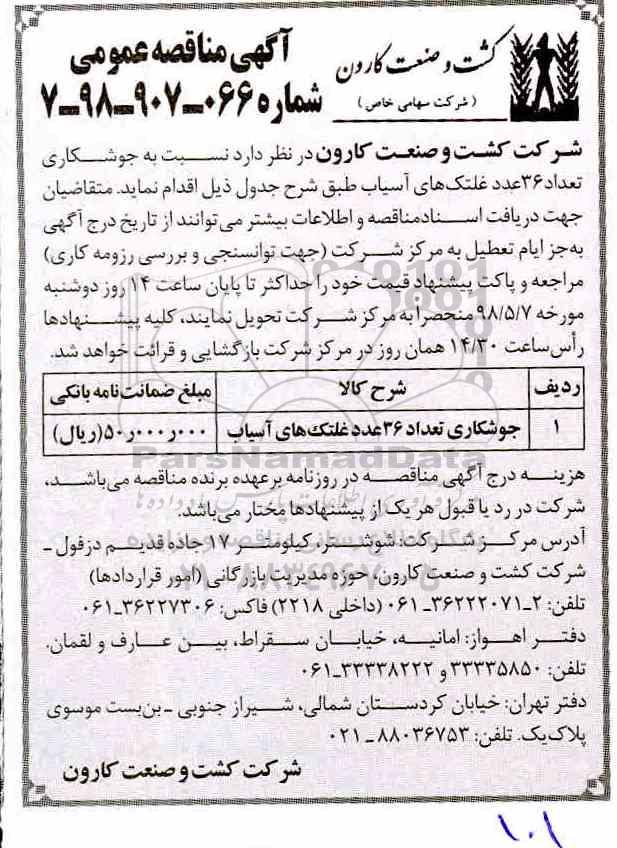 کشت و صنعت کارون
(شرکت سهامی خاص)
آگهی مناقصه عمومی
شماره ۰۶۶-۹۰۷-۹۸-۷
شرکت کشت و صنعت کارون در نظر دارد نسبت به جوشکاری
تعداد ۳۶ عدد غلتک‌های آسیاب طبق شرح جدول ذیل اقدام نماید. متقاضیان
جهت دریافت اسناد مناقصه و اطلاعات بیشتر می‌توانند از تاریخ درج آگهی
به‌جز ایام تعطیل به مرکز شرکت (جهت توانسنجی و بررسی رزومه کاری)
مراجعه و پاکت پیشنهاد قیمت خود را حداکثر تا پایان ساعت ۱۴ روز دوشنبه
مورخه ۹۸/۵/۷ منحصراً به مرکز شرکت تحویل نمایند، کلیه پیشنهادها
رأس ساعت ۱۴/۳۰ همان روز در مرکز شرکت بازگشایی و قرائت خواهد شد.
ردیف شرح کالا مبلغ ضمانت‌نامه بانکی
۱ جوشکاری تعداد ۳۶ عدد غلتک‌های آسیاب ۵۰٫۰۰۰٫۰۰۰ (ریال)
هزینه درج آگهی مناقصه در روزنامه برعهده برنده مناقصه می‌باشد،
شرکت در رد یا قبول هر یک از پیشنهادها مختار می‌باشد.
آدرس مرکز شرکت: شوشتر، کیلومتر ۱۷ جاده قدیم دزفول -
شرکت کشت و صنعت کارون، حوزه مدیریت بازرگانی (امور قراردادها)
تلفن: ۲-۳۶۲۲۲۰۷۱-۰۶۱ (داخلی ۲۲۱۸) فاکس: ۳۶۲۲۷۳۰۶-۰۶۱
دفتر اهواز: امانیه، خیابان سقراط، بین عارف و لقمان.
تلفن: ۳۳۳۳۵۸۵۰ و ۳۳۳۳۸۲۲۲-۰۶۱
دفتر تهران: خیابان کردستان شمالی، شیراز جنوبی - بن‌بست موسوی
پلاک یک. تلفن: ۸۸۰۳۶۷۵۳-۰۲۱
شرکت کشت و صنعت کارون
ParsNamadData
۱۰۱